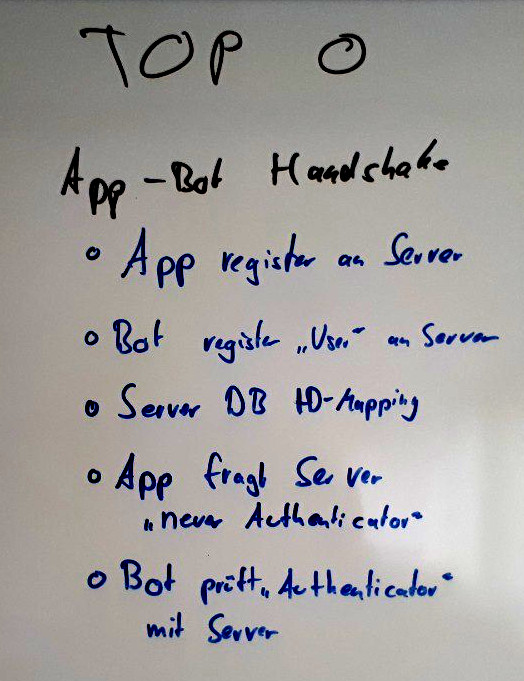 TOP 0
App-Bot Handshake
o App register an Server
o Bot register „User“ an Server
o Server DB ID-Mapping
o App fragt Server
„neuer Authenticator“
o Bot prüft „Authenticator“
mit Server